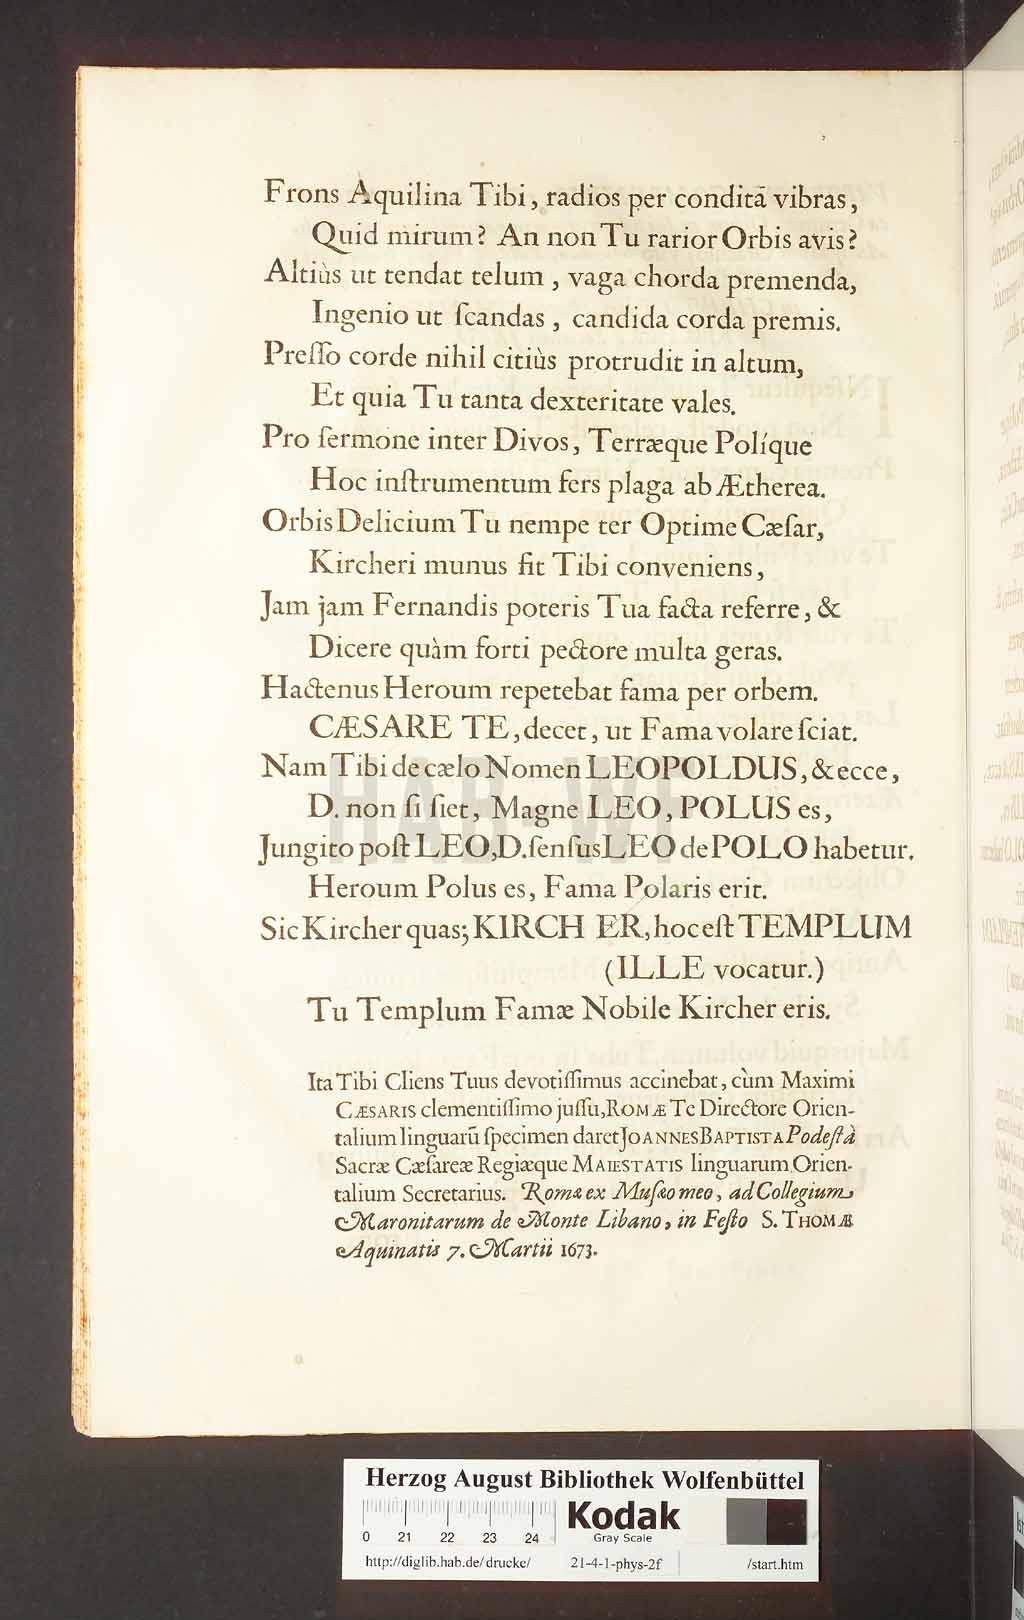 Frons Aquilina Tibi, radios per conditā vibras,
Quid mirum? An non Tu rarior Orbis avis?
Altiùs ut tendat telum, vaga chorda premenda,
Ingenio ut ſcandas, candida corda premis.
Preſſo corde nihil citiùs protrudit in altum,
Et quia Tu tanta dexteritate vales.
Pro ſermone inter Divos, Terræque Políque
Hoc inſtrumentum fers plaga ab Ætherea.
Orbis Delicium Tu nempe ter Optime Cæſar,
Kircheri munus fit Tibi conveniens,
Jam jam Fernandis poteris Tua facta referre, &
Dicere quàm forti pectore multa geras.
Hactenus Heroum repetebat fama per orbem.
CÆSARE TE, decet, ut Fama volare ſciat.
Nam Tibi de cælo Nomen LEOPOLDUS, & ecce,
D. non ſi ſiet, Magne LEO, POLUS es,
Jungito poſt LEO, D. ſenſus LEO de POLO habetur.
Heroum Polus es, Fama Polaris erit.
Sic Kircher quaſ; KIRCH ER, hoc eſt TEMPLUM
(ILLE vocatur.)
Tu Templum Famæ Nobile Kircher eris.
Ita Tibi Cliens Tuus devotiſſimus accinebat, cùm Maximi
CÆSARIS clementiſſimo juſſu, ROMÆ Te Directore Orien-
talium linguarū ſpecimen daret JOANNES BAPTISTA Podeſtà
Sacræ Cæſareæ Regiæque MAIESTATIS linguarum Orien-
talium Secretarius. Romæ ex Muſæo meo, ad Collegium
Maronitarum de Monte Libano, in Feſto S. THOMÆ
Aquinatis 7. Martii 1673.
HAB-WF
Herzog August Bibliothek Wolfenbüttel
Kodak
Gray Scale
0 21 22 23 24
http://diglib.hab.de/drucke/ 21-4-1-phys-2f /start.htm